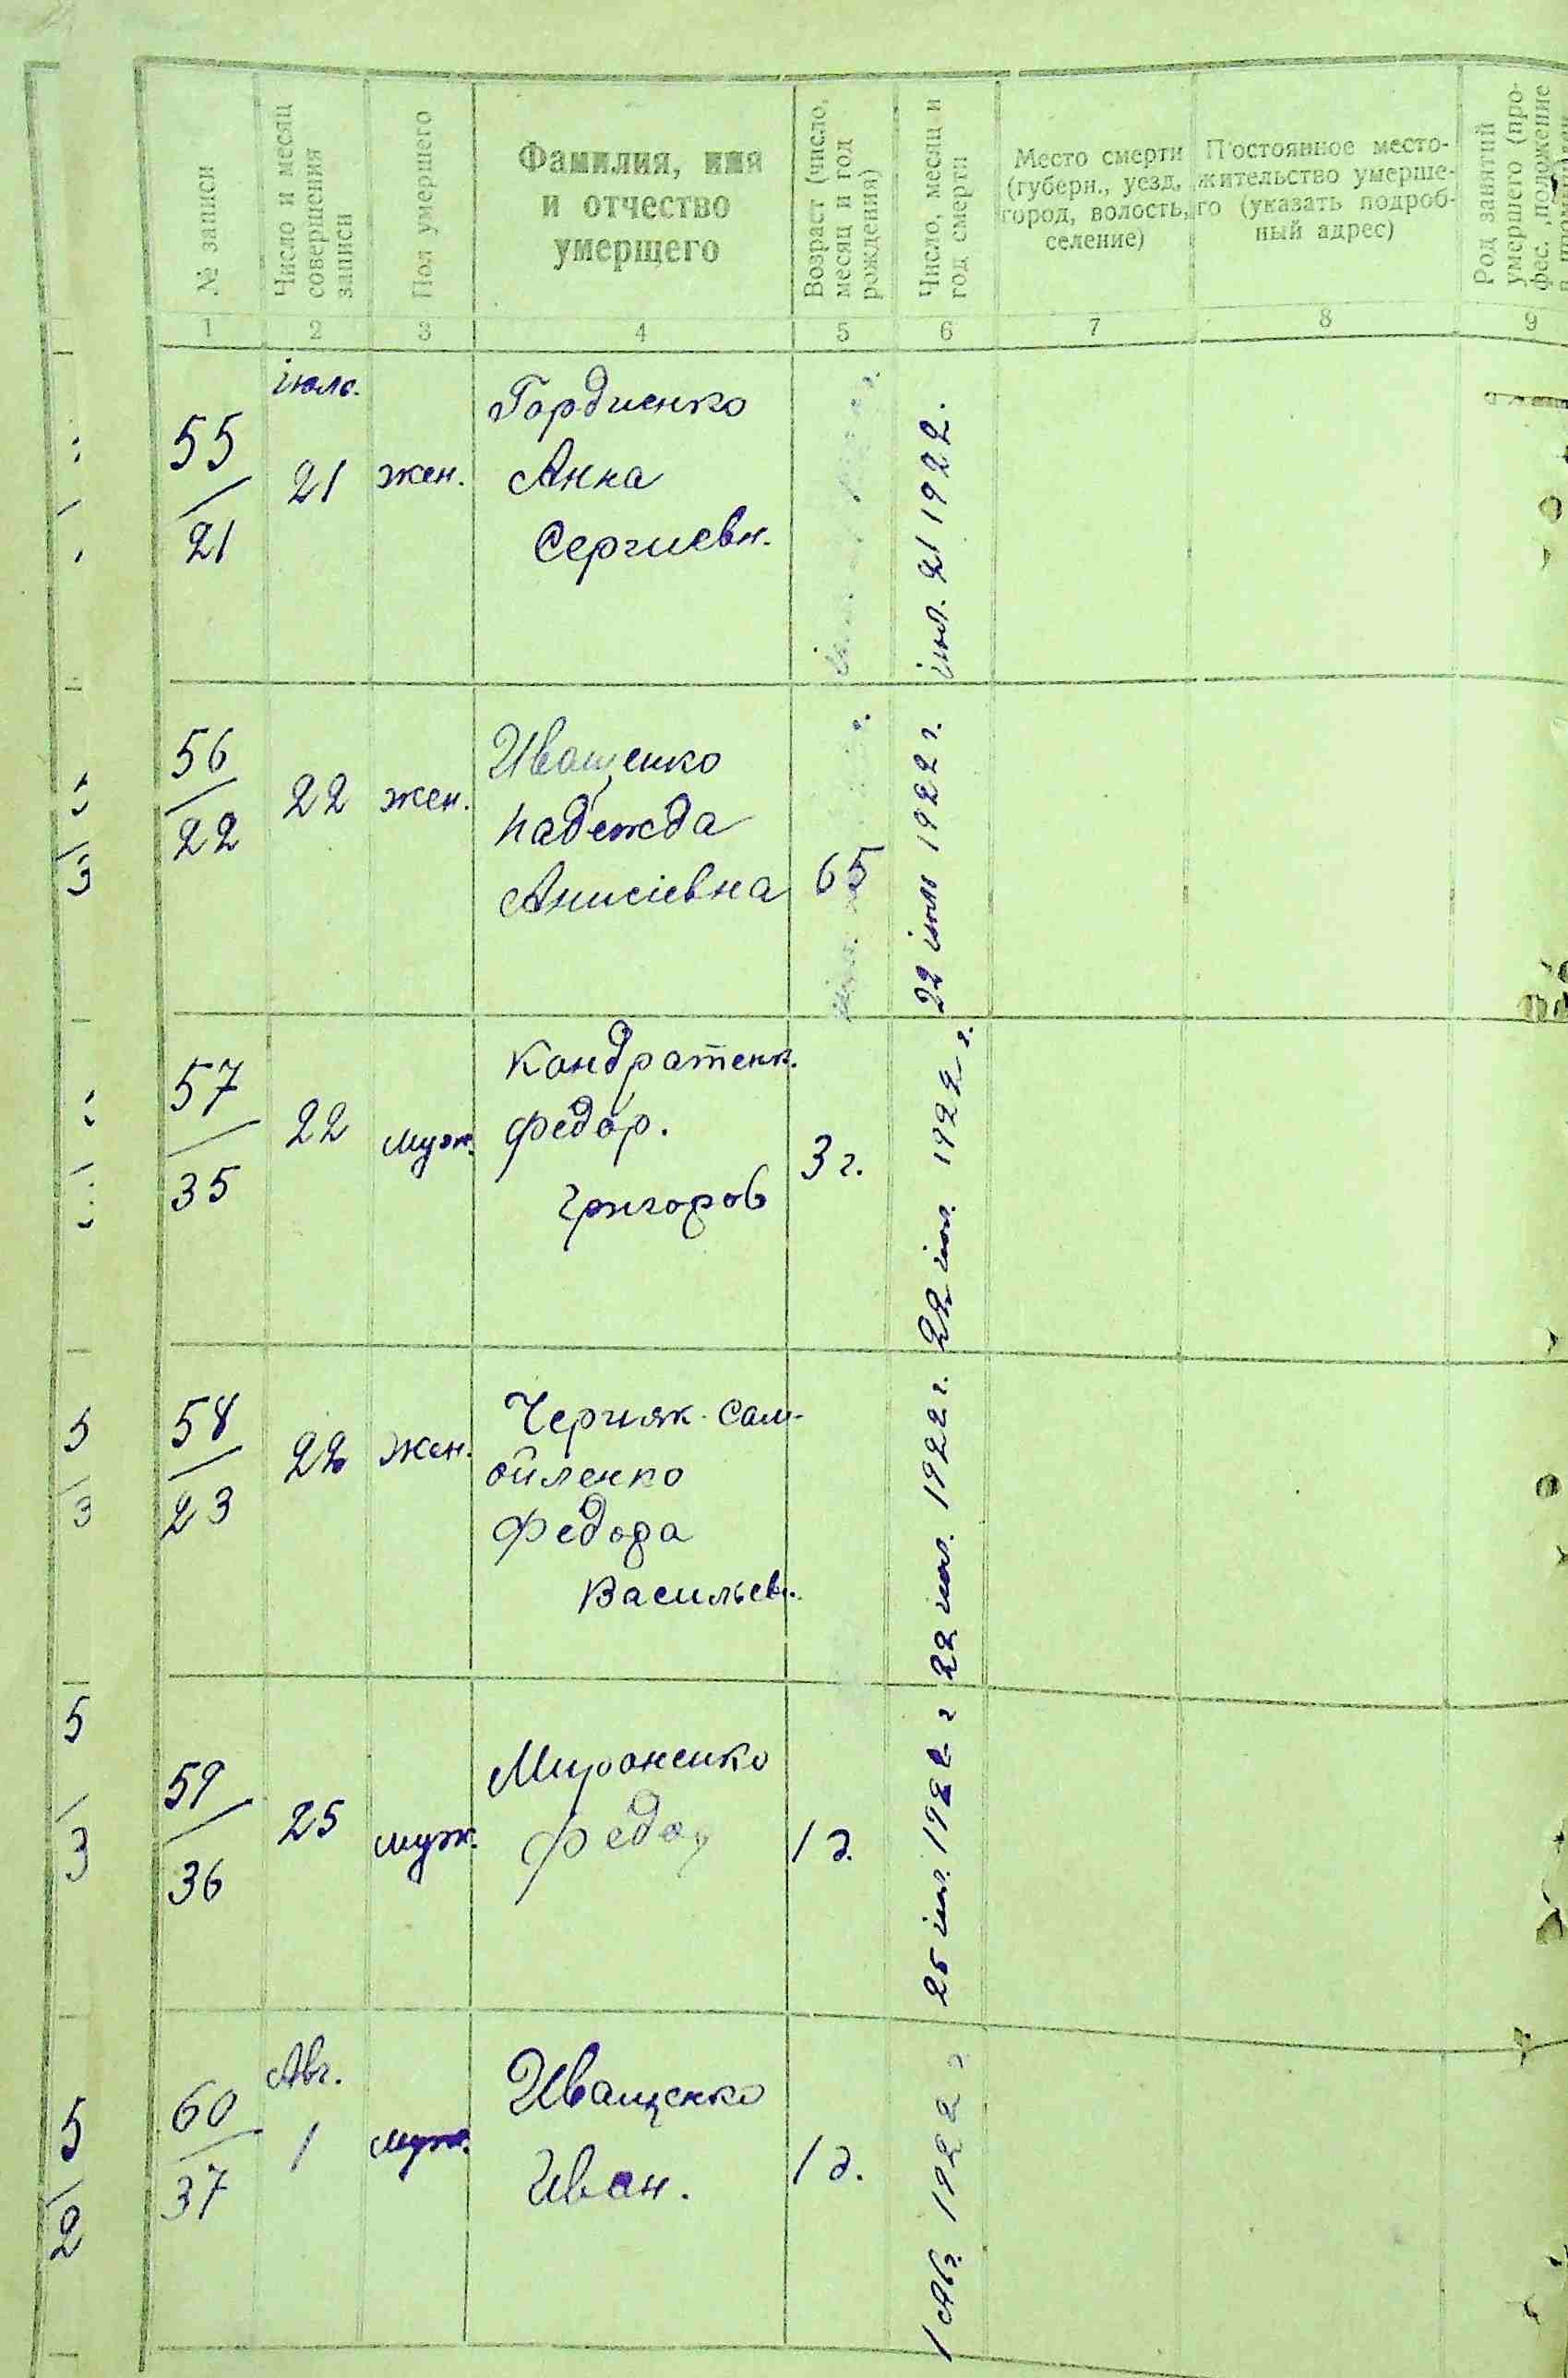 № записи
Число и месяц
совершения
записи
Пол умершего
Фамилия, имя
и отчество
умерщего
Возраст (число,
месяц и год
рождения)
Число, месяц и
год смерти
Место смерти
(губерн., уезд,
город, волость,
селение)
Постоянное место-
жительство умерше-
го (указать подроб-
ный адрес)
Род занятий
умершего (про-
фес., положение
1 2 3 4 5 6 7 8 9
55
21
июль.
21
жен.
Гордиенко
Анна
Сергиевн.
июл. 21 1922.
56
22
22
жен.
Иващенко
Надежда
Анисіевна
65
22 июль 1922 г.
57
35
22
муж.
Кондратенк.
Федор.
Григоров
3 г.
22 июл. 1922 г.
58
23
22
жен.
Черняк-Сам-
ойленко
Федора
Васильев.
22 июл. 1922 г.
59
36
25
муж.
Мироненко
Федор
1 д.
25 июл. 1922 г
60
37
Авг.
1
муж.
Иващенко
Иван.
1 д.
1 Авг. 1922 г